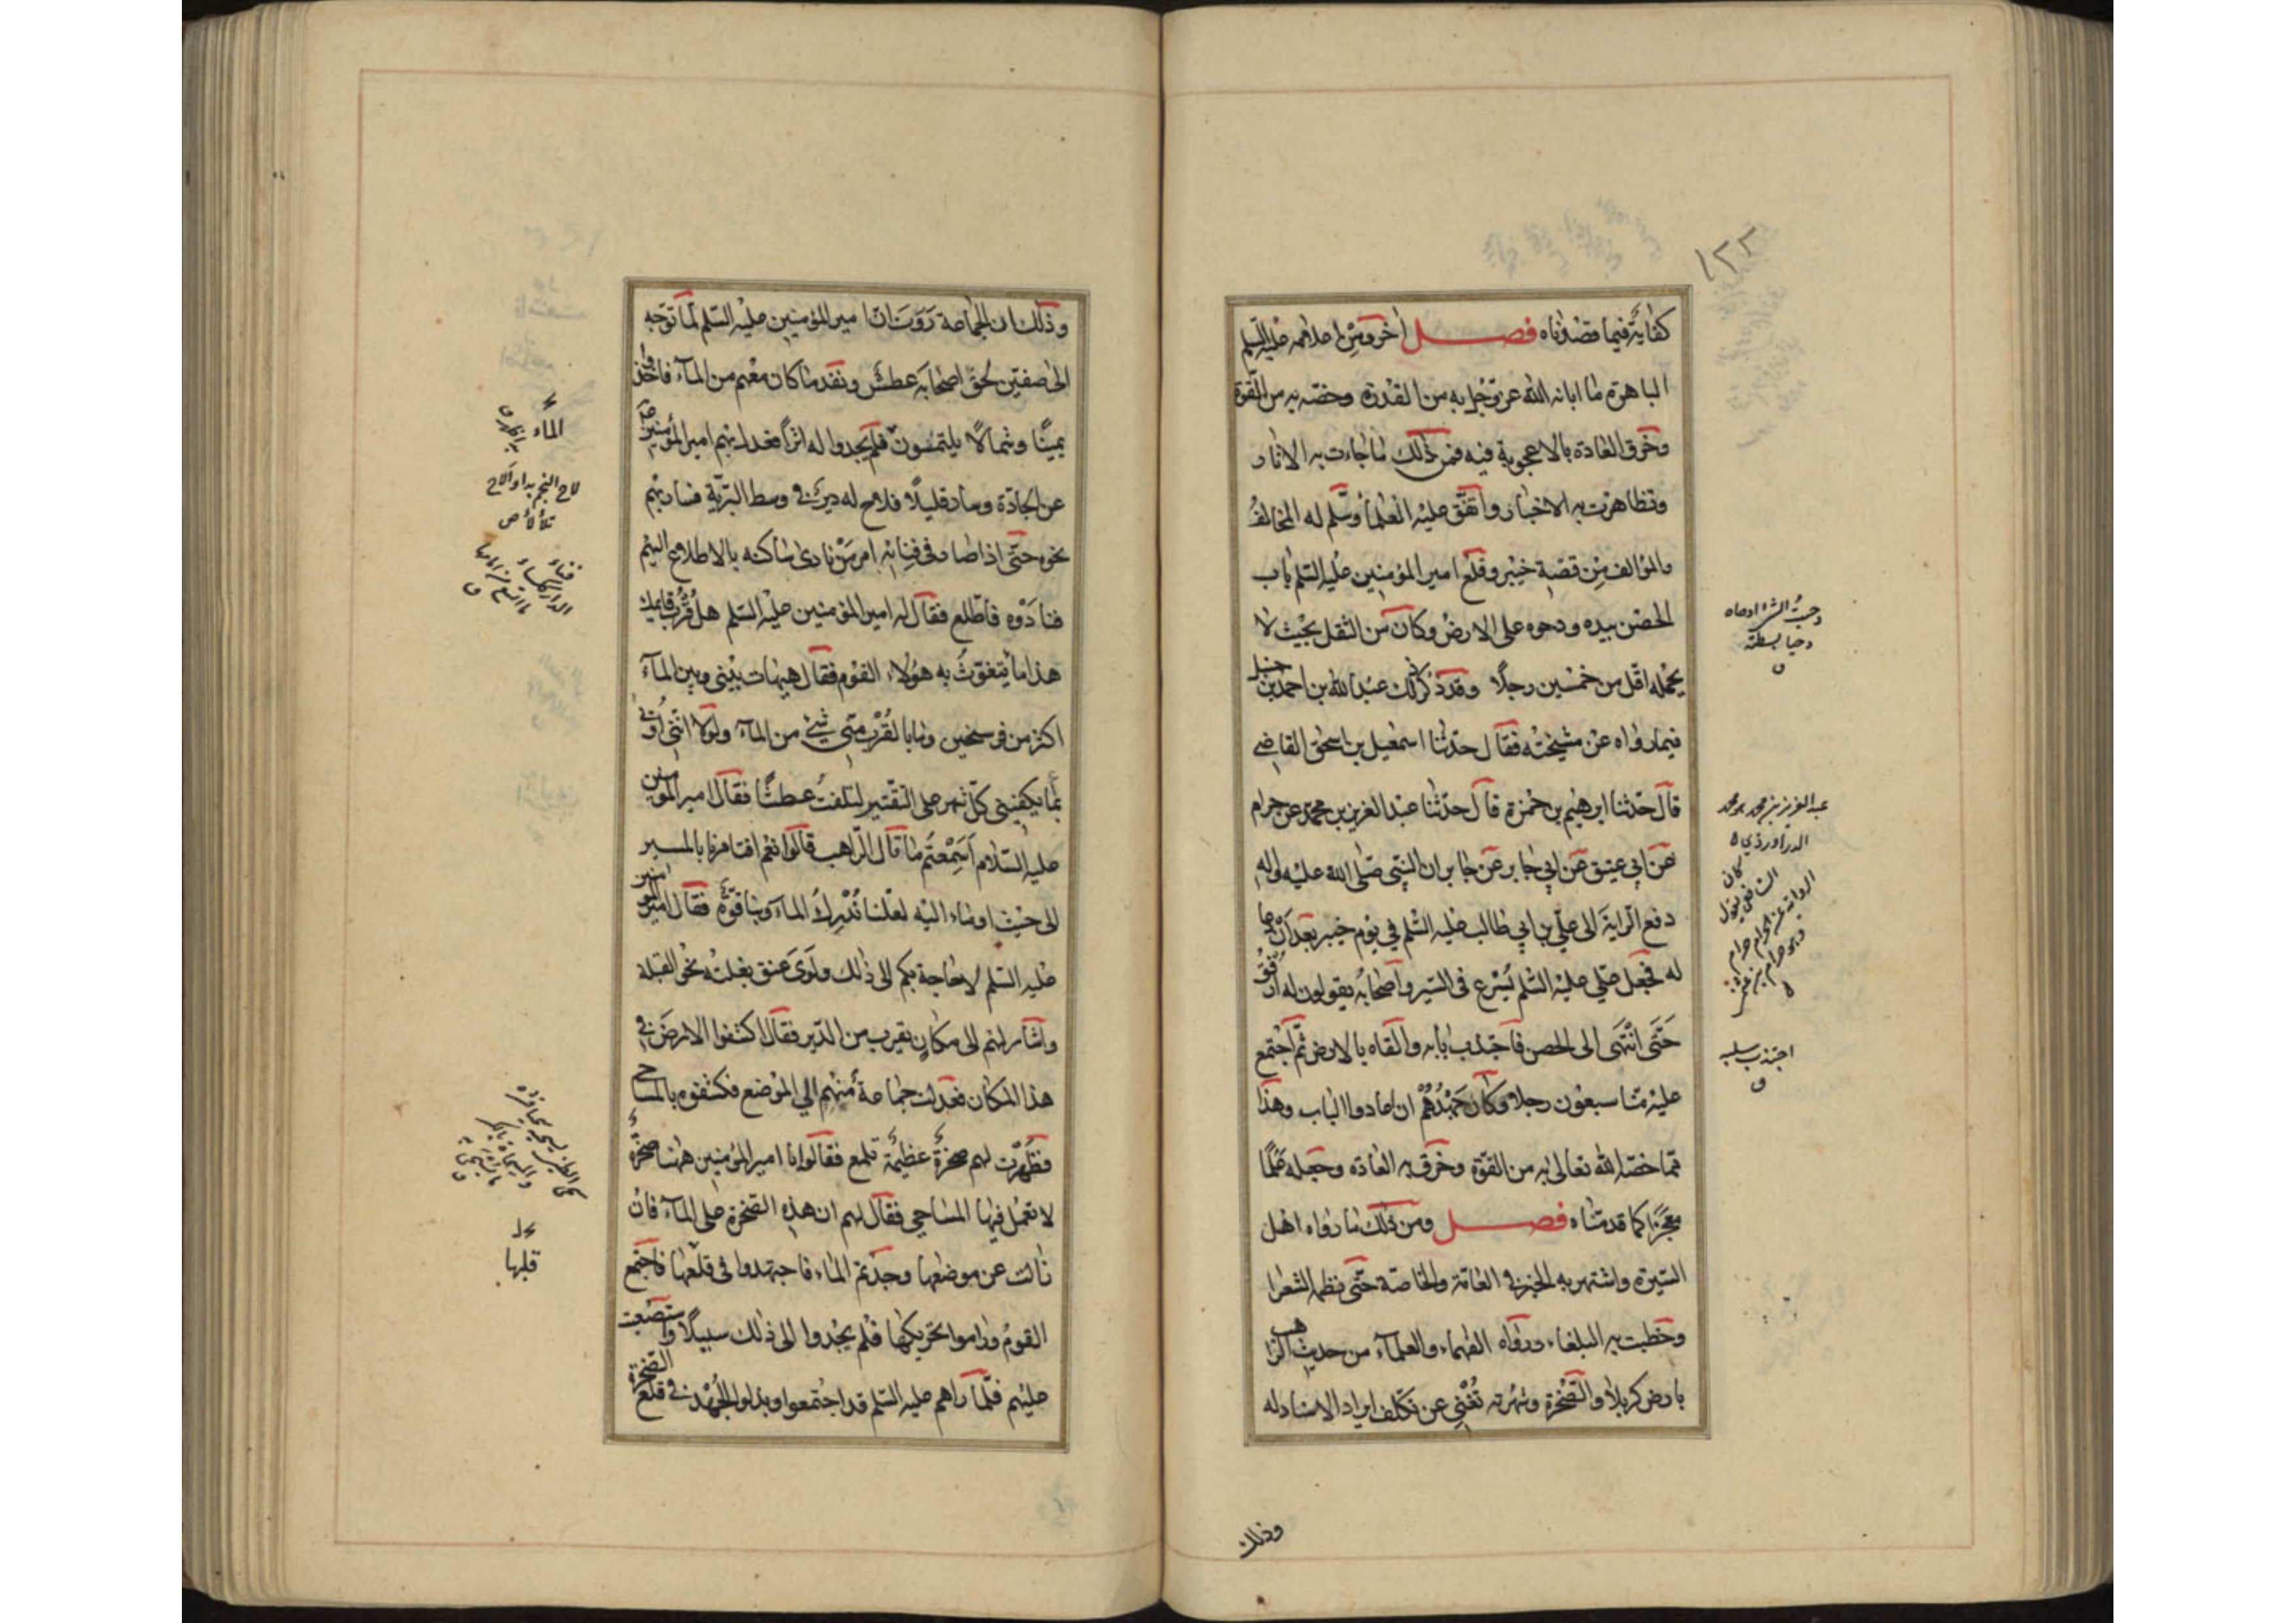 ١٣٣
كفاية فيما قصدناه فصل اخر ومن اعلامه عليه السلم
الباهرة ما ابانه الله عز وجل به من القدرة وخصّه به من القوّة
وخرق العادة بالاعجوبة فيه فمن ذلك ما جاءت به الاثار
وتظاهرت به الاخبار واتفق عليه العلماء وسلّم له المخالف
والمؤالف من قصة خيبر وقلع امير المؤمنين عليه السلم باب
الحصن بيده ودحوه على الارض وكان من الثقل بحيث لا
يحمله اقل من خمسين رجلا وقد ذكر ذلك عبد الله بن احمد بن حنبل
فيما رواه عن مشيخته فقال حدثنا اسمعيل بن اسحق القاضي
قال حدثنا ابرهيم بن حمزة قال حدثنا عبد العزيز بن محمد عن حرام
عن ابي عتيق عن ابي جابر عن جابر ان النبي صلى الله عليه واله
دفع الراية الى علي بن ابي طالب عليه السلم في يوم خيبر بعد ان دعا
له فجعل علي عليه السلم يسرع في السير واصحابه يقولون له ارفق
حتى انتهى الى الحصن فاجتذب بابه والقاه بالارض ثم اجتمع
عليه منا سبعون رجلا وكان جهدهم ان اعادوا الباب وهذا
مما خصّه الله تعالى به من القوّة وخرق به العادة وجعله علما
معجزا كما قدمناه فصل ومن ذلك ما رواه اهل
السيرة واشتهر به الخبر في العامّة والخاصّة حتى نظمه الشعرا
وخطبت به البلغاء ورواه الفهماء والعلماء من حديث الراهب
بارض كربلا والصخرة وشهرته تغني عن تكلف ايراد الاسناد له
وذلك
دحوت الشئ
دحيا بسطته
عبد العزيز بن محمد
الدراوردي
اجتذب سلبه
ق
وذلك ان الجماعة روت ان امير المؤمنين عليه السلم لما توجّه
الى صفين لحق اصحابه عطش ونفد ما كان معهم من الماء فاخذوا
يمينًا وشمالًا يلتمسون فلم يجدوا له اثرًا فعدل بهم امير المؤمنين
عن الجادّة وسار قليلًا فلاح له دير في وسط البريّة فسار بهم
نحوه حتى اذا صار في فنائه امر من نادى ساكنه بالاطلاع اليهم
فنادوه فاطّلع فقال له امير المؤمنين عليه السلم هل قرب قايمك
هذا ما يتغوّث به هؤلاء القوم فقال هيهات بيني وبين الماء
اكثر من فرسخين وما بالقرب مني شئ من الماء ولولا انني اوتى
بما يكفيني كل شهر على التقتير لتلفت عطشًا فقال امير المؤمنين
عليه السلام اسمعتم ما قال الراهب قالوا نعم افتامرنا بالمسير
الى حيث اوماء اليه لعلنا ندرك الماء وبنا قوّة فقال امير المؤمنين
عليه السلم لا حاجة بكم الى ذلك ولوى عنق بغلته نحو القبلة
واشار لهم الى مكان بقرب من الدير فقال اكشفوا الارض في
هذا المكان فعدلت جماعة منهم الى الموضع فكشفوه بالمساحي
فظهرت لهم صخرة عظيمة تلمع فقالوا يا امير المؤمنين ههنا صخرة
لا تعمل فيها المساحي فقال لهم ان هذه الصخرة على الماء فان
زالت عن موضعها وجدتم الماء فاجتهدوا في قلعها فاجتمع
القوم وراموا تحريكها فلم يجدوا الى ذلك سبيلًا واستصعبت
عليهم فلما راهم عليه السلم قد اجتمعوا وبذلوا الجهد في قلع الصخرة
الماء
لاح النجم بدا والاح
تلألأ ص
قلبها